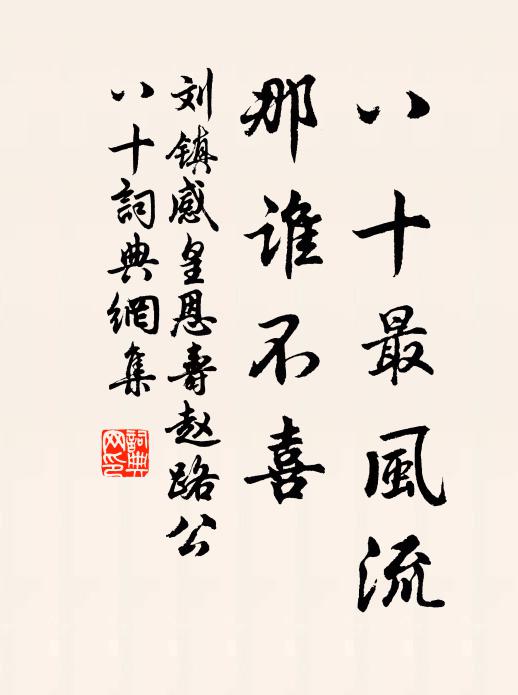 八十最風流
那誰不喜
刘镇感皇恩壽赵路公
八十詞典網集
詞典网印